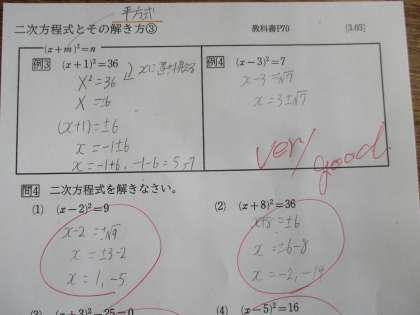 平方式
二次方程式とその解き方③ 教科書P70 [3.63]
(x+m)²=n
例3 (x+1)²=36
X²=36
X=±6
(x+1)=±6
x=-1±6
x=-1+6, -1-6=5,-7
例4 (x-3)²=7
x-3=±√7
x=3±√7
very good
問4 二次方程式を解きなさい。
(1) (x-2)²=9
x-2=±√9
x=±3-2
x=1,-5
(2) (x+8)²=36
x+8=±6
x=±6-8
x=-2,-14
(4) (x-5)²=16